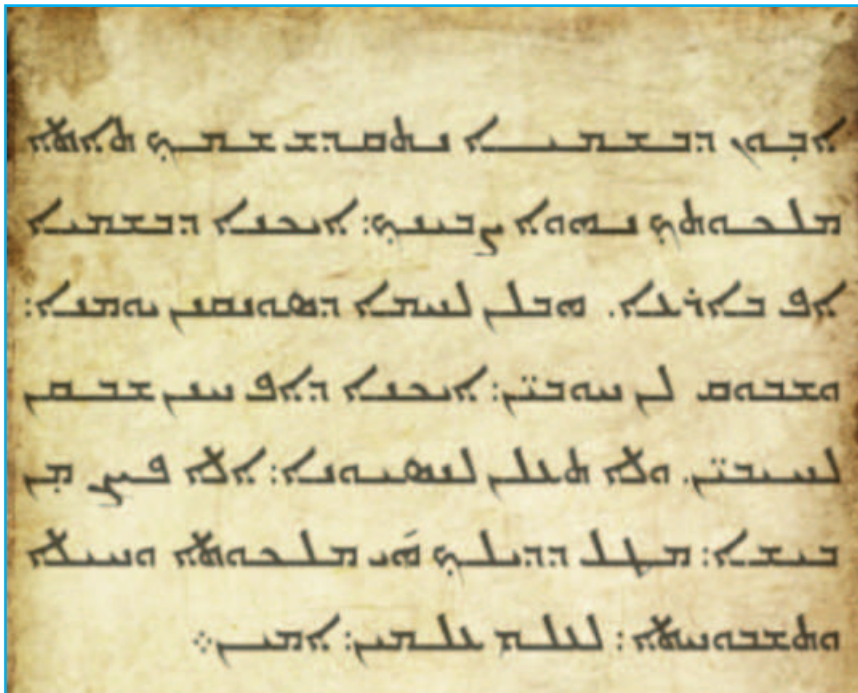 ܐܒܘܢ ܕܒܫܡܝܐ ܢܬܩܕܫ ܫܡܟ ܬܐܬܐ
ܡܠܟܘܬܟ ܢܗܘܐ ܨܒܝܢܟ: ܐܝܟܢܐ ܕܒܫܡܝܐ
ܐܦ ܒܐܪܥܐ. ܗܒܠܢ ܠܚܡܐ ܕܣܘܢܩܢܢ ܝܘܡܢܐ:
ܘܫܒܘܩ ܠܢ ܚܘܒܝ̈ܢ: ܐܝܟܢܐ ܕܐܦ ܚܢܢ ܫܒܩܢ
ܠܚܝܒܝ̈ܢ. ܘܠܐ ܬܥܠܢ ܠܢܣܝܘܢܐ: ܐܠܐ ܦܨܢ ܡ̣ܢ
ܒܝܫܐ: ܡܛܠ ܕܕܝܠܟ ܗ̄ܝ ܡܠܟܘܬܐ ܘܚܝܠܐ
ܘܬܫܒܘܚܬܐ: ܠܥܠܡ ܥܠܡܝܢ: ܐܡܝܢ܀